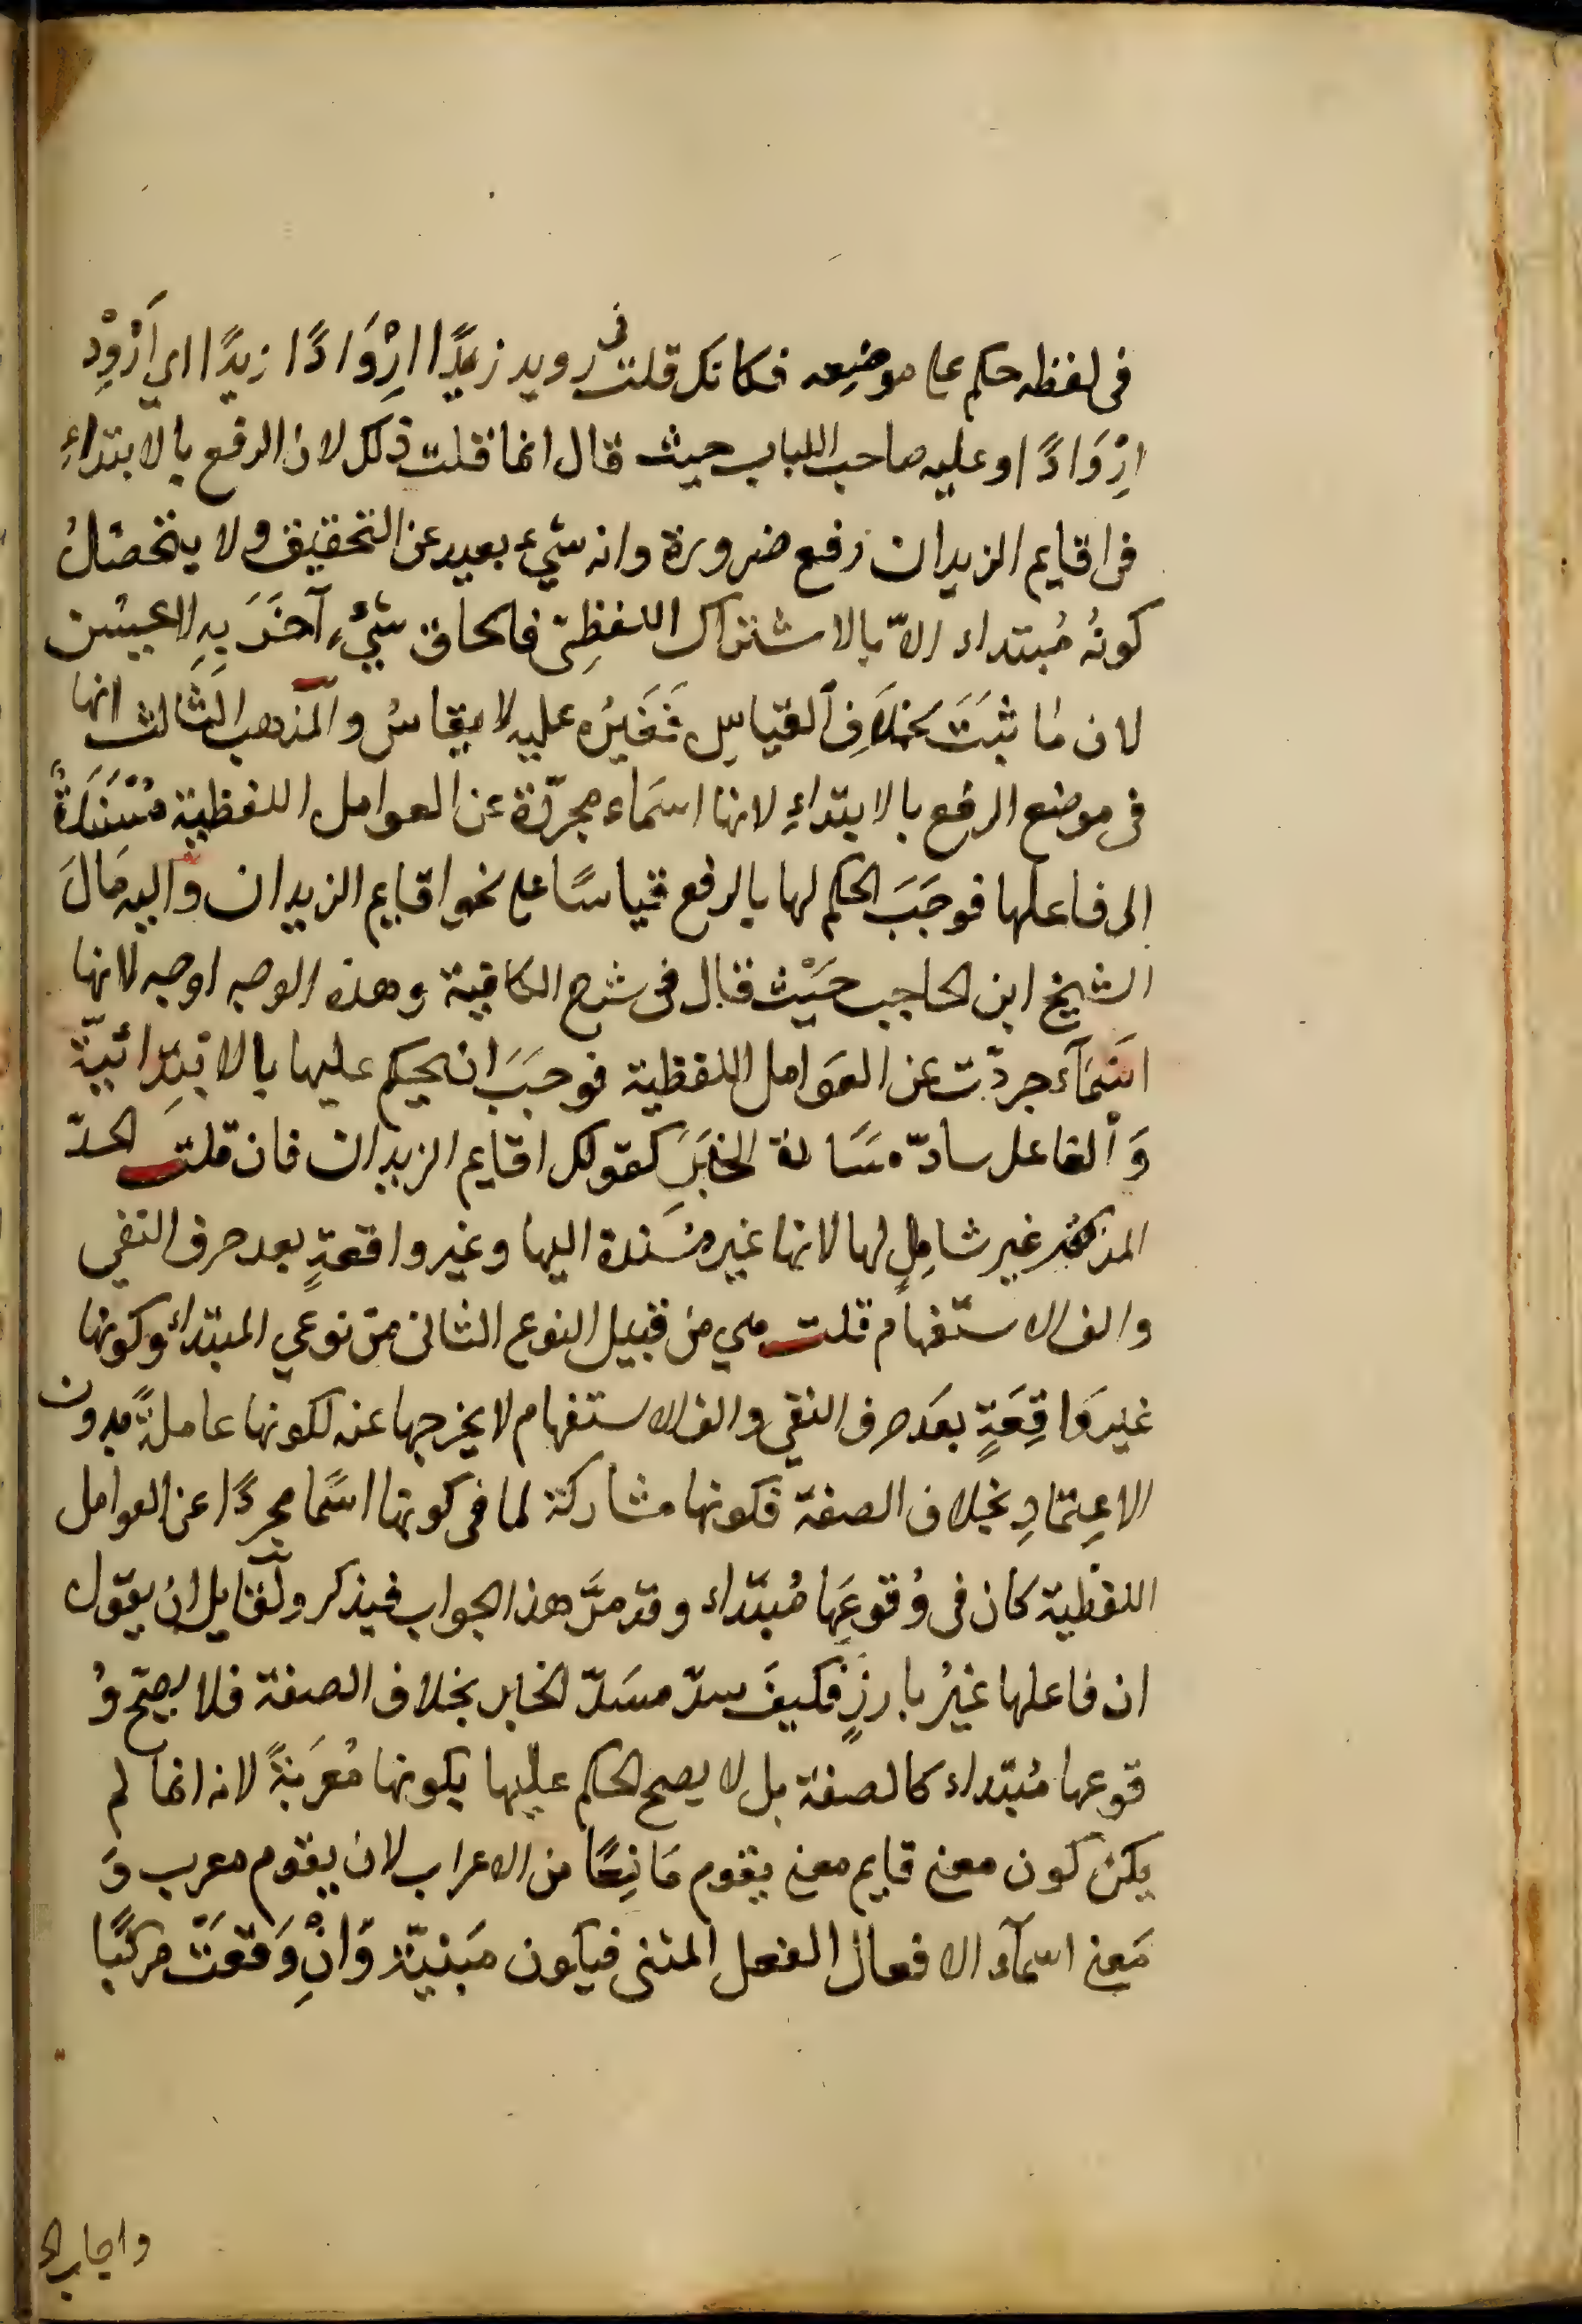 فى لفظه حكم على موضِعه فكانك قلت فى رويد زيدًا اِرْوَادًا زيدًا اى اَرْوِدْ
اِرْوَادًا وعليه صاحب اللباب حيث قال انما قلت ذلك لان الرفع بالابتداءِ
فى اقايم الزيدان رفع ضرورة وانه شىء بعيد عن التحقيق ولا يتحصّلُ
كونُه مُبتداء الاّ بالاشتراك اللفظِىّ فالحاق شىْءٍ آخَرَ بِهِ لا يحسُن
لان مَا ثبَتَ بخِلَافِ القياسِ فَغَيْرُه عليه لا يقاسُ والمَذهب الثالث انها
فى موضع الرفع بالابتداءِ لانها اسمَاء مجرّدة عن العوامل اللفظيّة مُسْنَدَةٌ
الى فاعلها فوجَبَ الحكم لها بالرفع قياسًا على نحو اقايم الزيدان واليه مَالَ
الشيخ ابن الحاجب حَيْث قال فى شرح الكافية وهذه الوجه اوجه لانها
اسْمَآء جردّت عن العَوامل اللفظية فوجَبَ ان يحيكم عليها بالابتِدائيّة
وَالفاعل سادّ مسَادة الخبَرِ كقولك اقايم الزيدان فان قلت الحدّ
المذكور غير شامِلٍ لها لانها غير مسْندة اليها وغير واقعةٍ بعد حرف النفى
والف الاستفهام قلت هى من قبيل النوع الثانى من نوعي المبتداء وكونها
غير وَاقِعَةٍ بعَد حرف النفى والف الاستفهام لا يخرجها عنه لكونها عاملةً بدون
الاعِتمادِ بخلاف الصفة فكونها مشاركة لما فى كونها اسمًا مجردًا عن العوامل
اللفظية كان فى وُقوعَها مُبتداء وقد مرَّ هذا الجواب فيذكر ولقَايل ان يقول
ان فاعلها غيْرُ بارزٍ فكيفَ سدّ مسَدّ الخابر بخلاف الصفة فلا يصحّ وُ
قوعها مُبتداء كالصفة بل لا يصح الحكم عليها بكونها مُعرَبةً لانه انما لم
يكن كون معنى قايم معنى يقوم مَانِعًا من الاعراب لان يقوم معرب وَ
مَعنى اسمآء الافعال الفعل المبنى فيكون مَبنيّة وَاِنْ وَقعَتْ مركّبا
واجاب ال